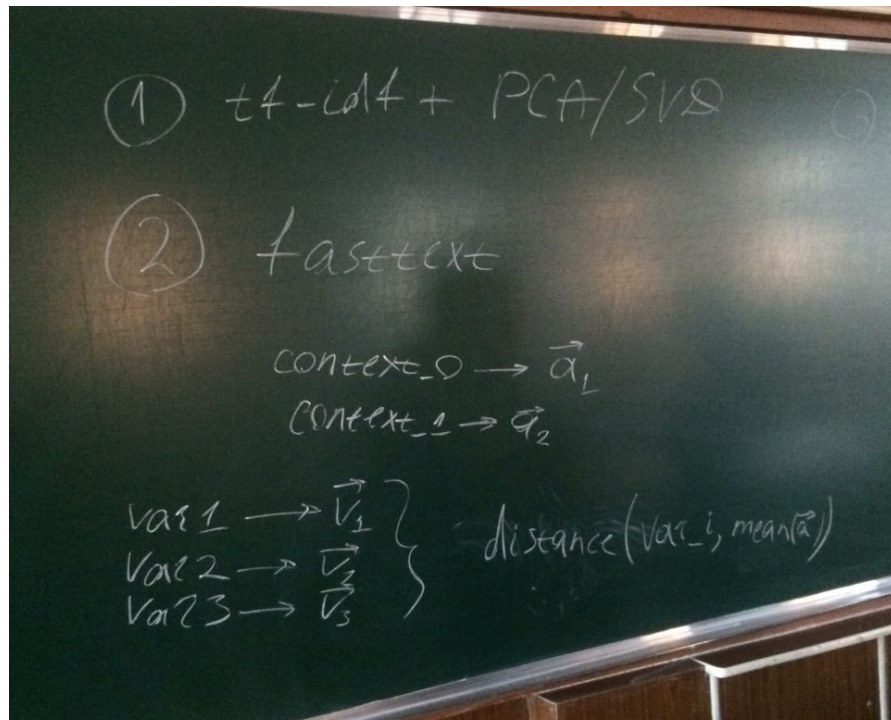 ① tf-idf + PCA/SVD
② fasttext
context_0 → a⃗₁
context_1 → a⃗₂
var1 → v⃗₁
var2 → v⃗₂
var3 → v⃗₃
distance(var_i, mean(a⃗))